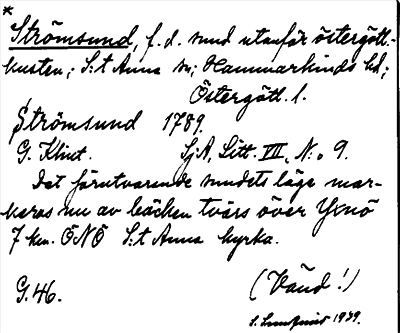 *
Strömsund, f.d. sund utanför östergötl.-
kusten; S:t Anna sn; Hammarkinds hd;
Östergötl. l.
Strömsund 1789.
G. Klint. SjA, Litt. VII, N:o 9.
Det förutvarande sundets läge mar-
keras nu av bäcken tvärs över Yxnö
7 km. ÖNÖ S:t Anna kyrka.
G. 46. (Vänd!)
S. 1939.